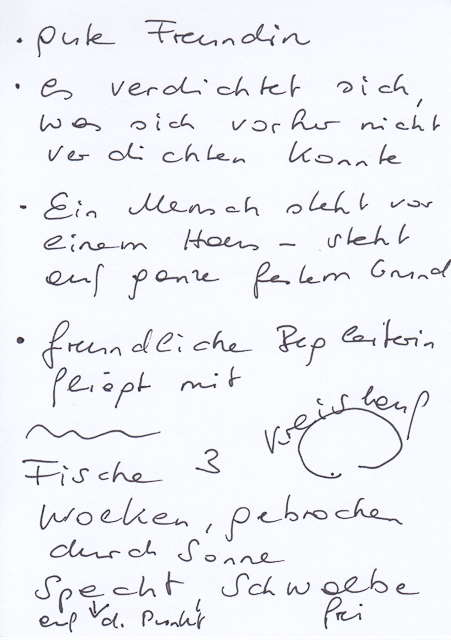 · gute Freundin
· es verdichtet sich,
was sich vorher nicht
verdichten konnte
· Ein Mensch steht vor
einem Haus – steht
auf ganze festem Grund
· freundliche Begleiterin
fliegt mit
Kreislauf
Fische 3
Wolken, gebrochen
durch Sonne
Specht, Schwalbe
auf d. Punkt! frei